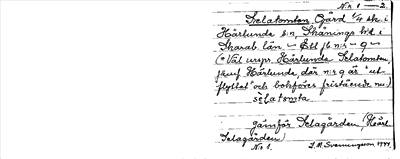 N:o 1 — 2.
Selatomten Gård 1/4 sk. i
Härlunda s:n, Skånings hd. i
Skarab. län — Ett fb n:r — 9 —
(= Väl urspr. Härlunda Selatomten,
jämf. Härlunda, där n:r 9 är "ut-
flyttat" och bokföres fristående nu)
selatomta
Jämför Selagården (Kvärl.
Selagården)
N:o 1.
S. M. Svenungsson 1944.